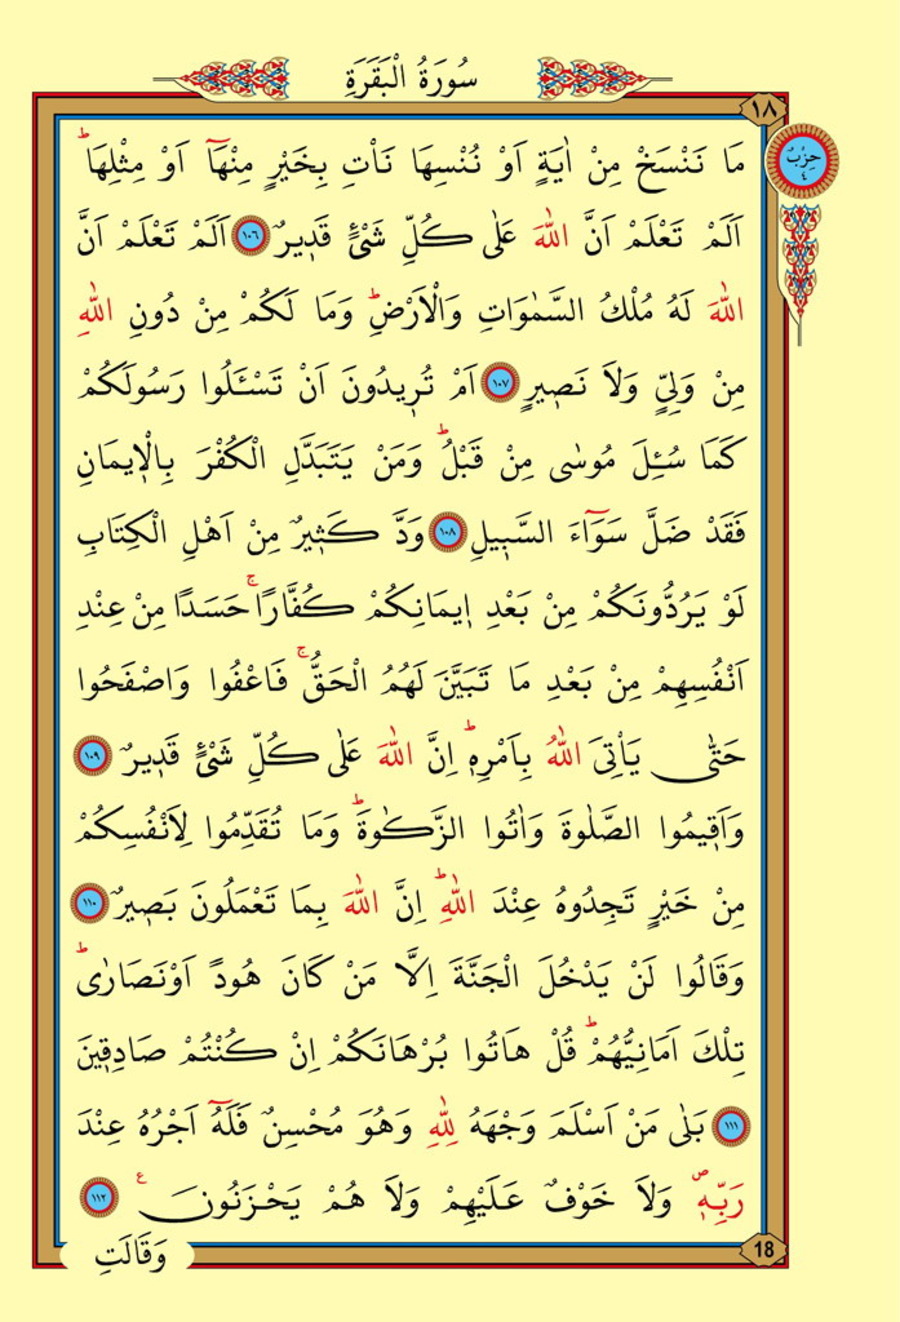 سُورَةُ الْبَقَرَةِ
١٨
حِزْبٌ
٤
مَا نَنْسَخْ مِنْ اٰيَةٍ اَوْ نُنْسِهَا نَاْتِ بِخَيْرٍ مِنْهَٓا اَوْ مِثْلِهَاۜ
اَلَمْ تَعْلَمْ اَنَّ اللّٰهَ عَلٰى كُلِّ شَيْءٍ قَد۪يرٌ ١٠٦ اَلَمْ تَعْلَمْ اَنَّ
اللّٰهَ لَهُ مُلْكُ السَّمٰوَاتِ وَالْاَرْضِۜ وَمَا لَكُمْ مِنْ دُونِ اللّٰهِ
مِنْ وَلِيٍّ وَلَا نَص۪يرٍ ١٠٧ اَمْ تُر۪يدُونَ اَنْ تَسْـَٔلُوا رَسُولَكُمْ
كَمَا سُئِلَ مُوسٰى مِنْ قَبْلُۜ وَمَنْ يَتَبَدَّلِ الْكُفْرَ بِالْا۪يمَانِ
فَقَدْ ضَلَّ سَوَٓاءَ السَّب۪يلِ ١٠٨ وَدَّ كَث۪يرٌ مِنْ اَهْلِ الْكِتَابِ
لَوْ يَرُدُّونَكُمْ مِنْ بَعْدِ ا۪يمَانِكُمْ كُفَّارًاۚ حَسَدًا مِنْ عِنْدِ
اَنْفُسِهِمْ مِنْ بَعْدِ مَا تَبَيَّنَ لَهُمُ الْحَقُّۚ فَاعْفُوا وَاصْفَحُوا
حَتّٰى يَاْتِيَ اللّٰهُ بِاَمْرِه۪ۜ اِنَّ اللّٰهَ عَلٰى كُلِّ شَيْءٍ قَد۪يرٌ ١٠٩
وَاَق۪يمُوا الصَّلٰوةَ وَاٰتُوا الزَّكٰوةَۜ وَمَا تُقَدِّمُوا لِاَنْفُسِكُمْ
مِنْ خَيْرٍ تَجِدُوهُ عِنْدَ اللّٰهِۜ اِنَّ اللّٰهَ بِمَا تَعْمَلُونَ بَص۪يرٌ ١١٠
وَقَالُوا لَنْ يَدْخُلَ الْجَنَّةَ اِلَّا مَنْ كَانَ هُودًا اَوْ نَصَارٰىۜ
تِلْكَ اَمَانِيُّهُمْۜ قُلْ هَاتُوا بُرْهَانَكُمْ اِنْ كُنْتُمْ صَادِق۪ينَ
١١١ بَلٰى مَنْ اَسْلَمَ وَجْهَهُ لِلّٰهِ وَهُوَ مُحْسِنٌ فَلَهُٓ اَجْرُهُ عِنْدَ
رَبِّه۪ۖ وَلَا خَوْفٌ عَلَيْهِمْ وَلَا هُمْ يَحْزَنُونَ ع ١١٢
18
وَقَالَتِ